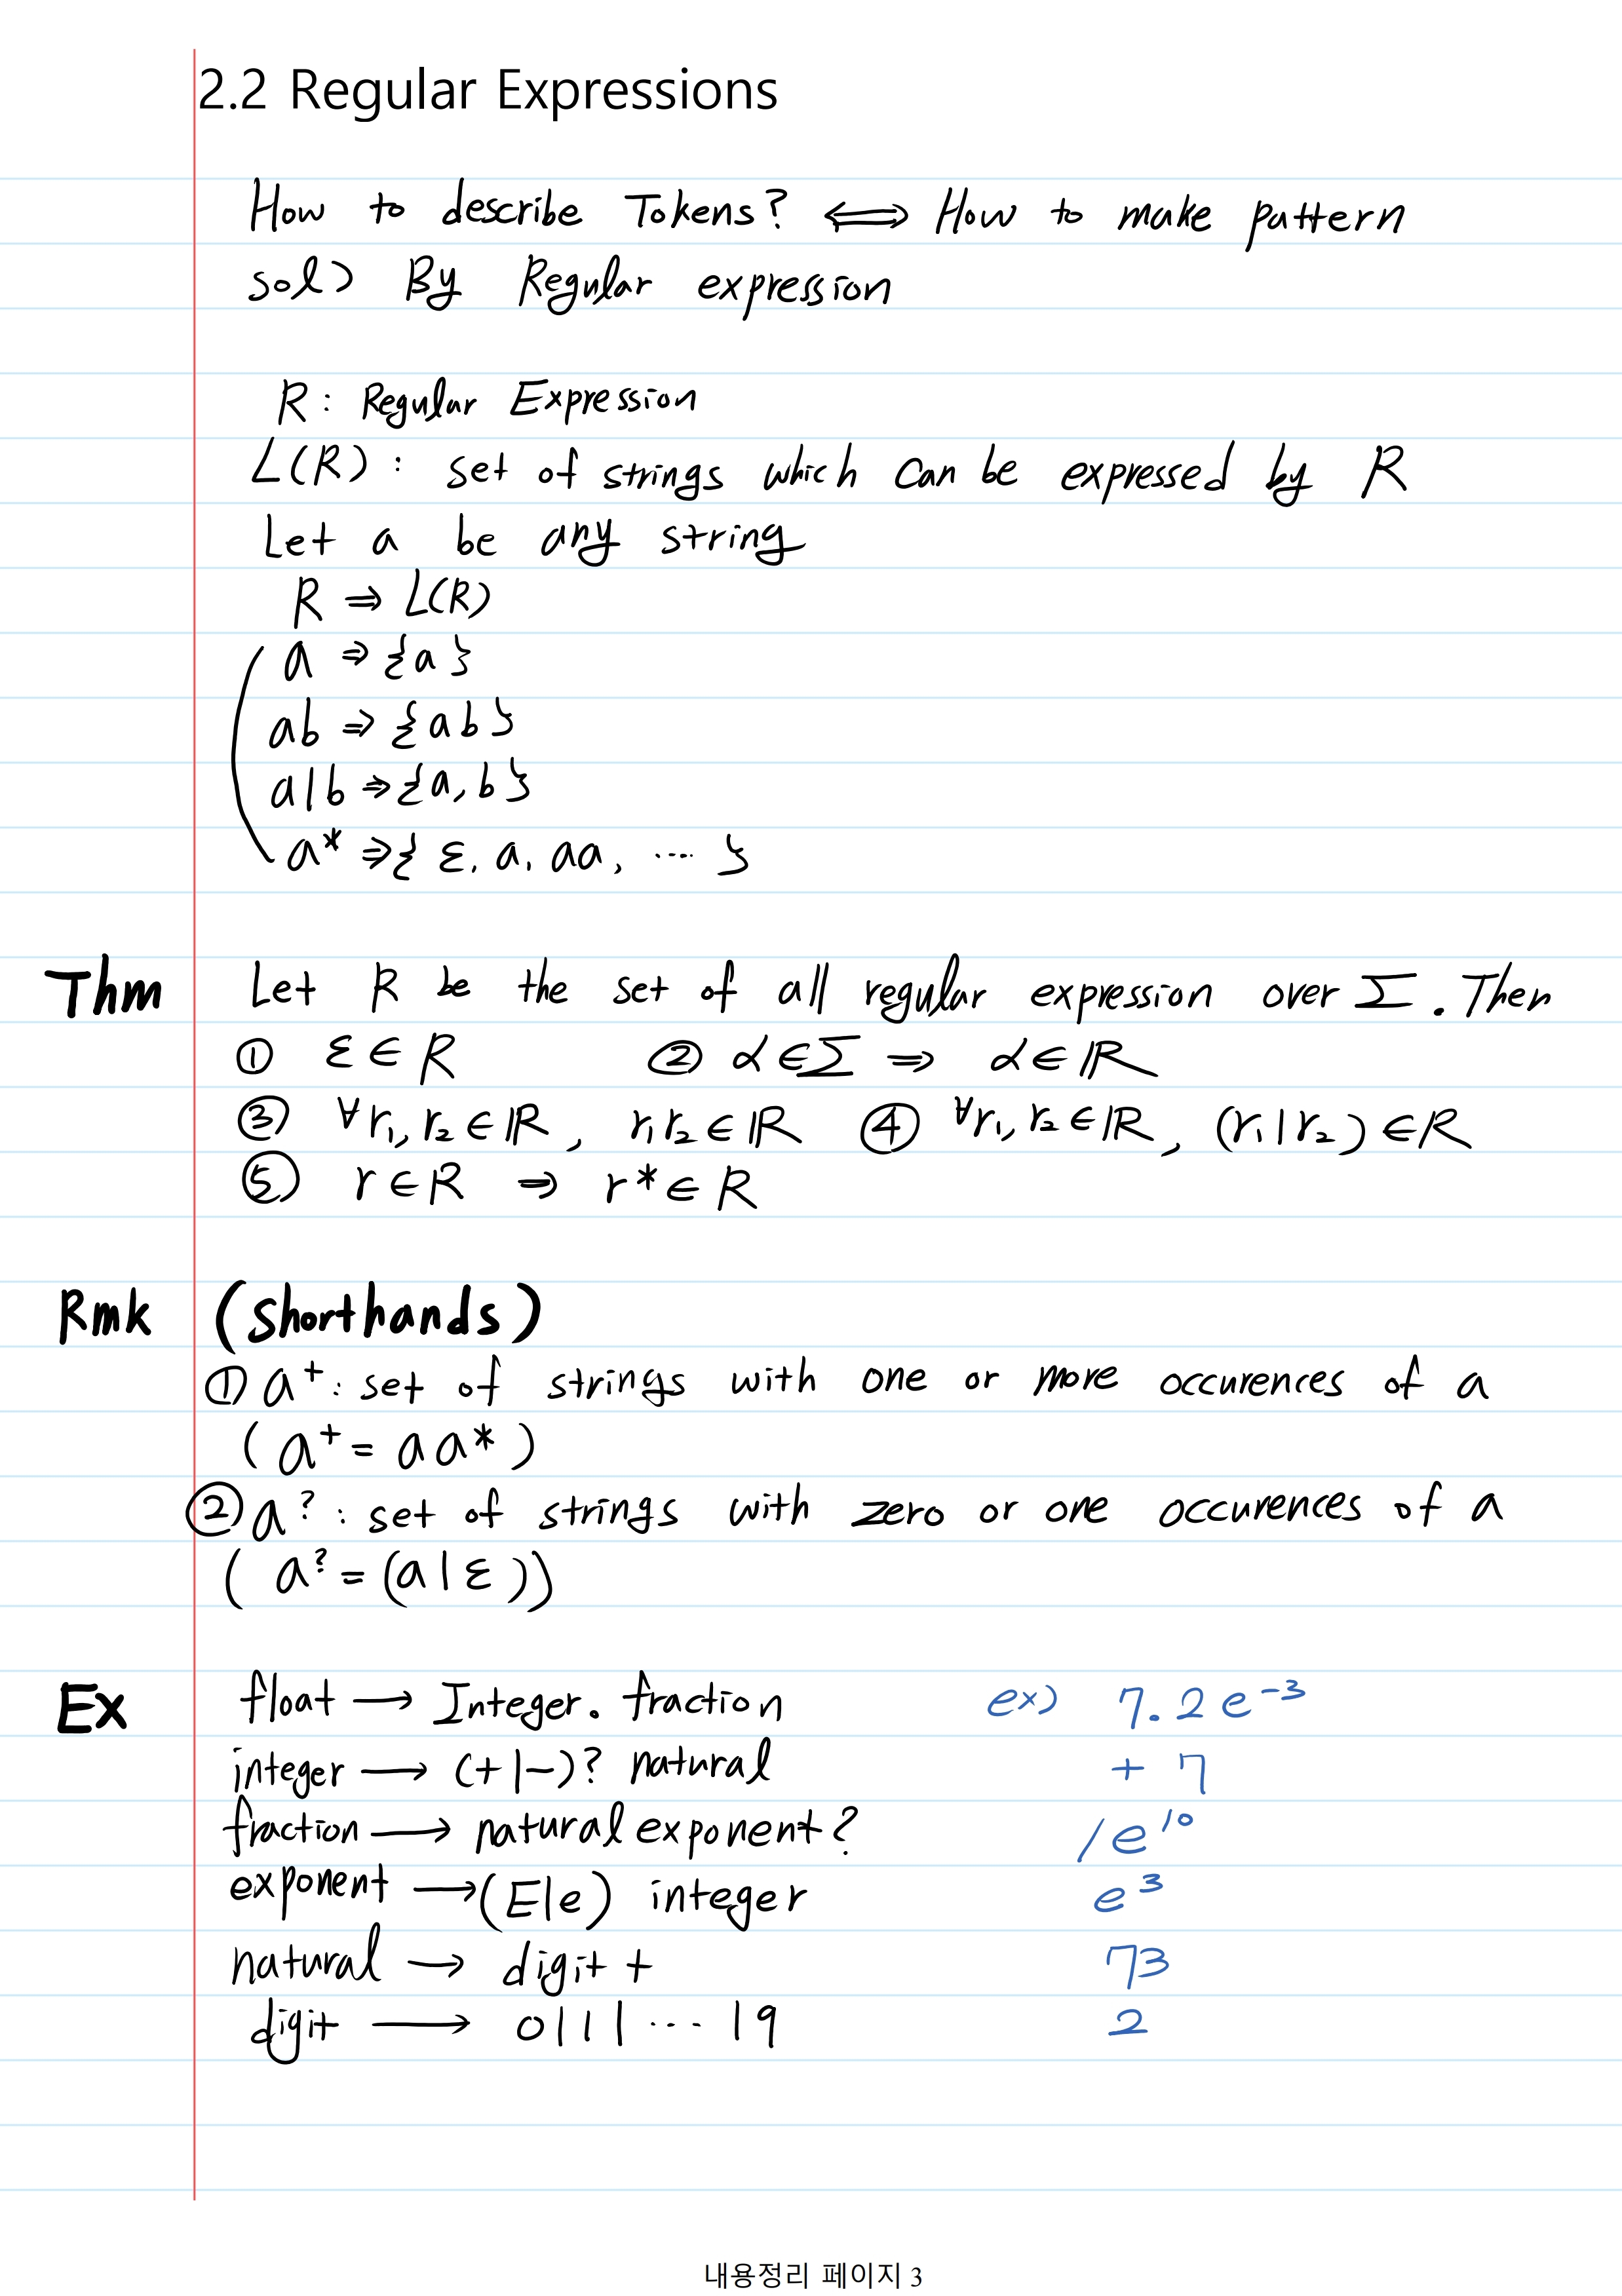 2.2 Regular Expressions
How to describe Tokens? ⟺ How to make pattern
sol> By Regular expression
R : Regular Expression
L(R) : set of strings which can be expressed by R
Let a be any string
R ⇒ L(R)
a ⇒ {a}
ab ⇒ {ab}
a|b ⇒ {a,b}
a* ⇒ { ε, a, aa, ⋯ }
Thm Let R be the set of all regular expression over Σ. Then
① ε ∈ R ② α ∈ Σ ⇒ α ∈ ℝ
③ ∀r₁, r₂ ∈ ℝ, r₁r₂ ∈ ℝ ④ ∀r₁, r₂ ∈ ℝ, (r₁|r₂) ∈ R
⑤ r ∈ R ⇒ r* ∈ R
Rmk (shorthands)
① a⁺ : set of strings with one or more occurences of a
( a⁺ = aa* )
② a? : set of strings with zero or one occurences of a
( a? = (a|ε))
Ex float → Integer. fraction ex) 7.2e⁻³
integer → (+|-)? natural + 7
fraction → natural exponent? /e¹⁰
exponent → (E|e) integer e³
natural → digit + 73
digit → 0|1| ⋯ |9 2
내용정리 페이지 3